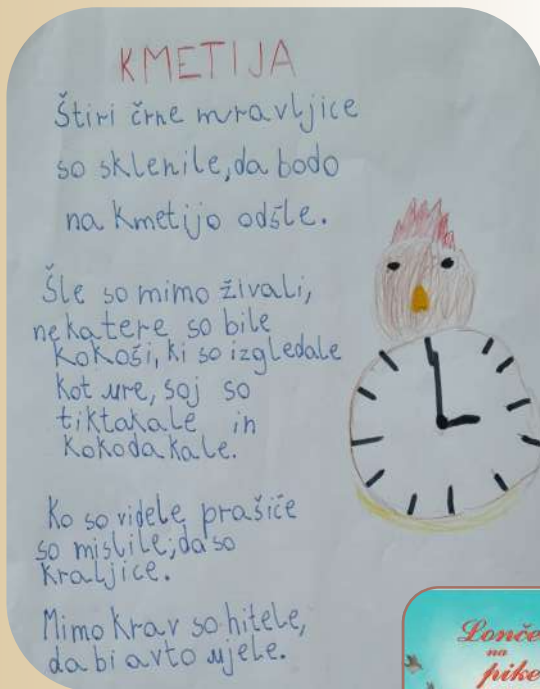 KMETIJA
Štiri črne mravljice
so sklenile, da bodo
na kmetijo odšle.
Šle so mimo živali,
nekatere so bile
kokoši, ki so izgledale
kot ure, soj so
tiktakale in
kokodakale.
Ko so videle prašiče
so mislile, da so
kraljice.
Mimo krav so hitele,
da bi avto ujele.
Lonče
na
pike